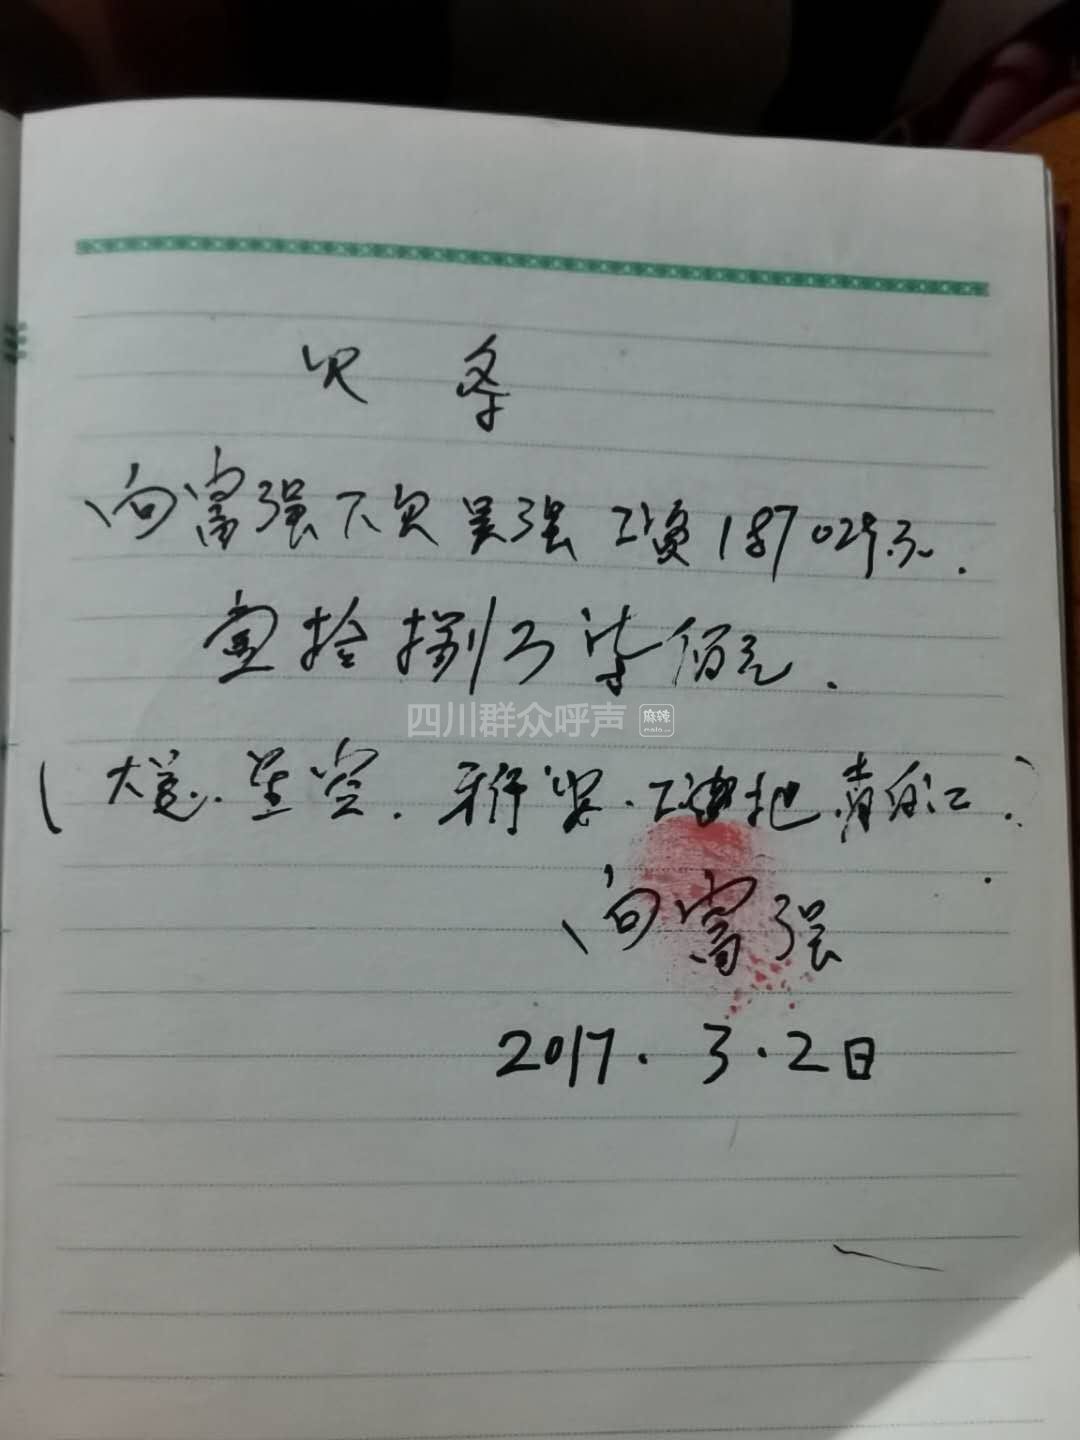 欠条
向富强下欠吴强工资187029元.
壹拾捌万柒佰元.
四川群众呼声 麻辣
(大意.星空.
向富强
2017.3.2日